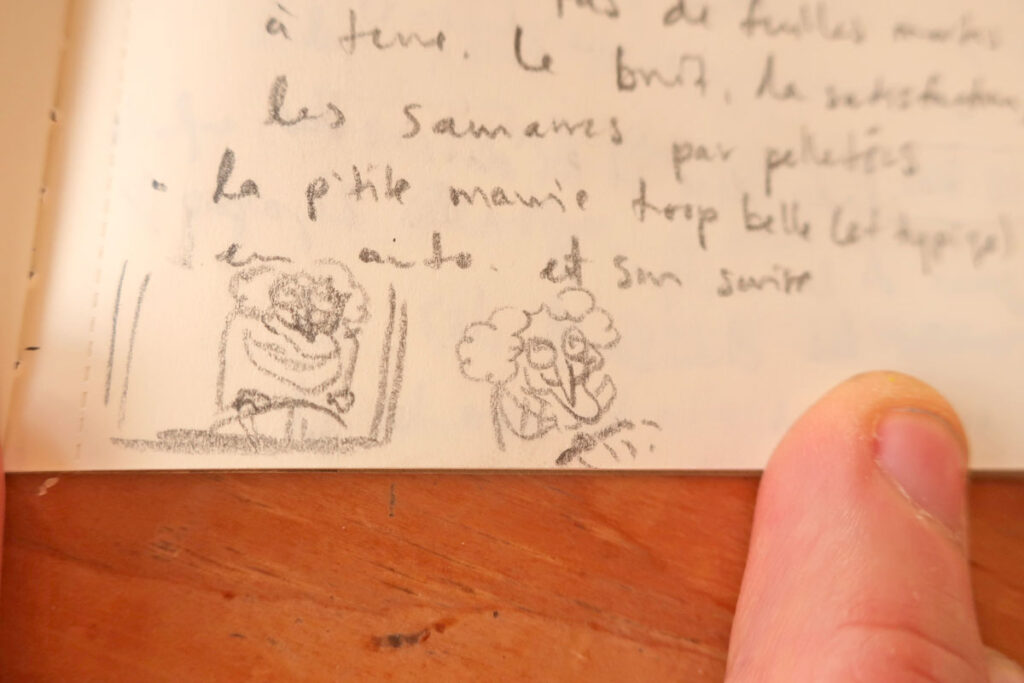 pas de feuilles mortes
à terre. Le bruit, la satisfaction,
les samares par pelletées
• La p'tite mamie trop belle (et typisé)
en auto. et son sourire